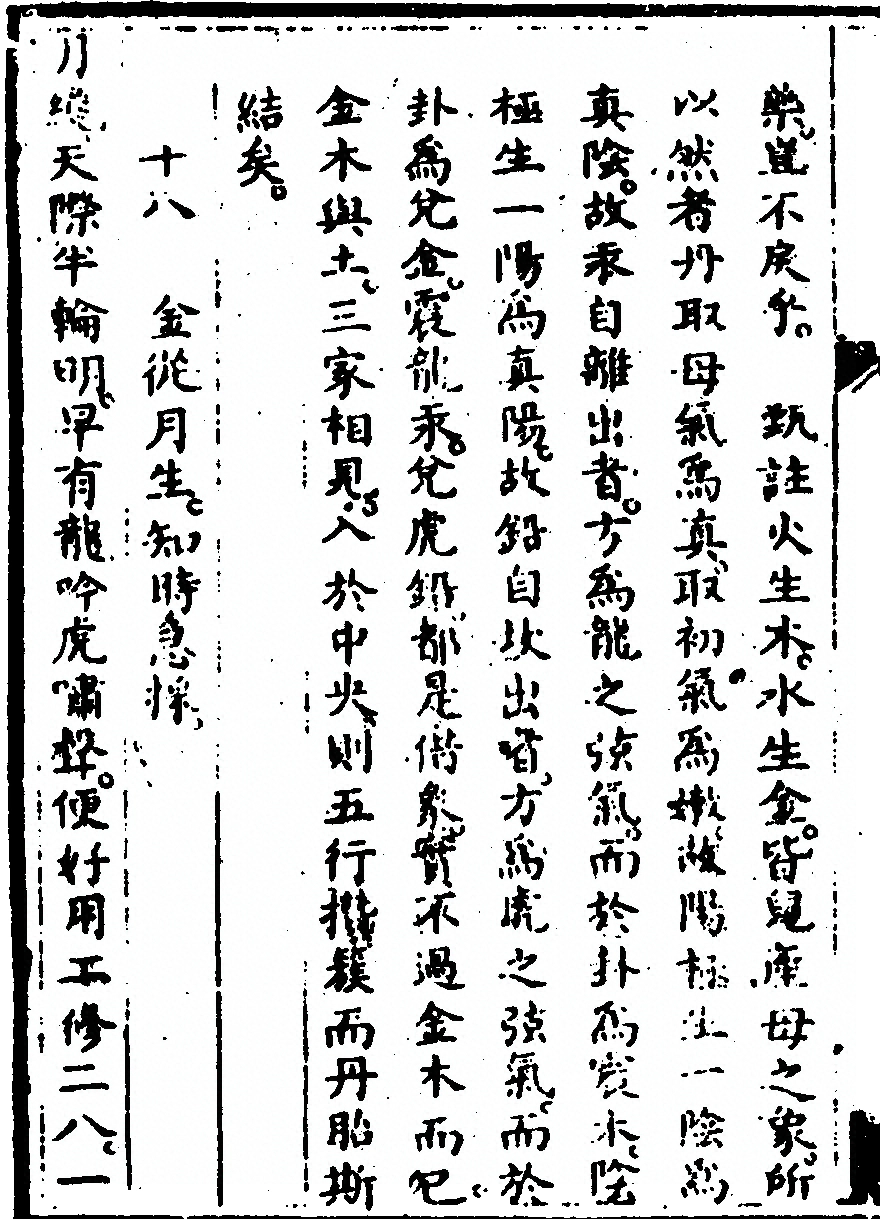 藥豈不戾乎。 甄註火生木水生金。皆兒產母之象。所
以然者丹取母氣爲真取初氣爲嫩故陽極生一陰爲
真陰。故汞自離出者。方爲龍之弦氣而於卦爲震木陰
極生一陽爲真陽故鉛自坎出者方爲虎之弦氣而於
卦爲兌金震龍汞兌虎鉛都是借象實不過金木而已
金木與土三家相見入於中央則五行攢簇而丹胎斯
結矣。
十八 金從月生知時急採
月纔天際半輪明早有龍吟虎嘯聲。便好用工修二八一